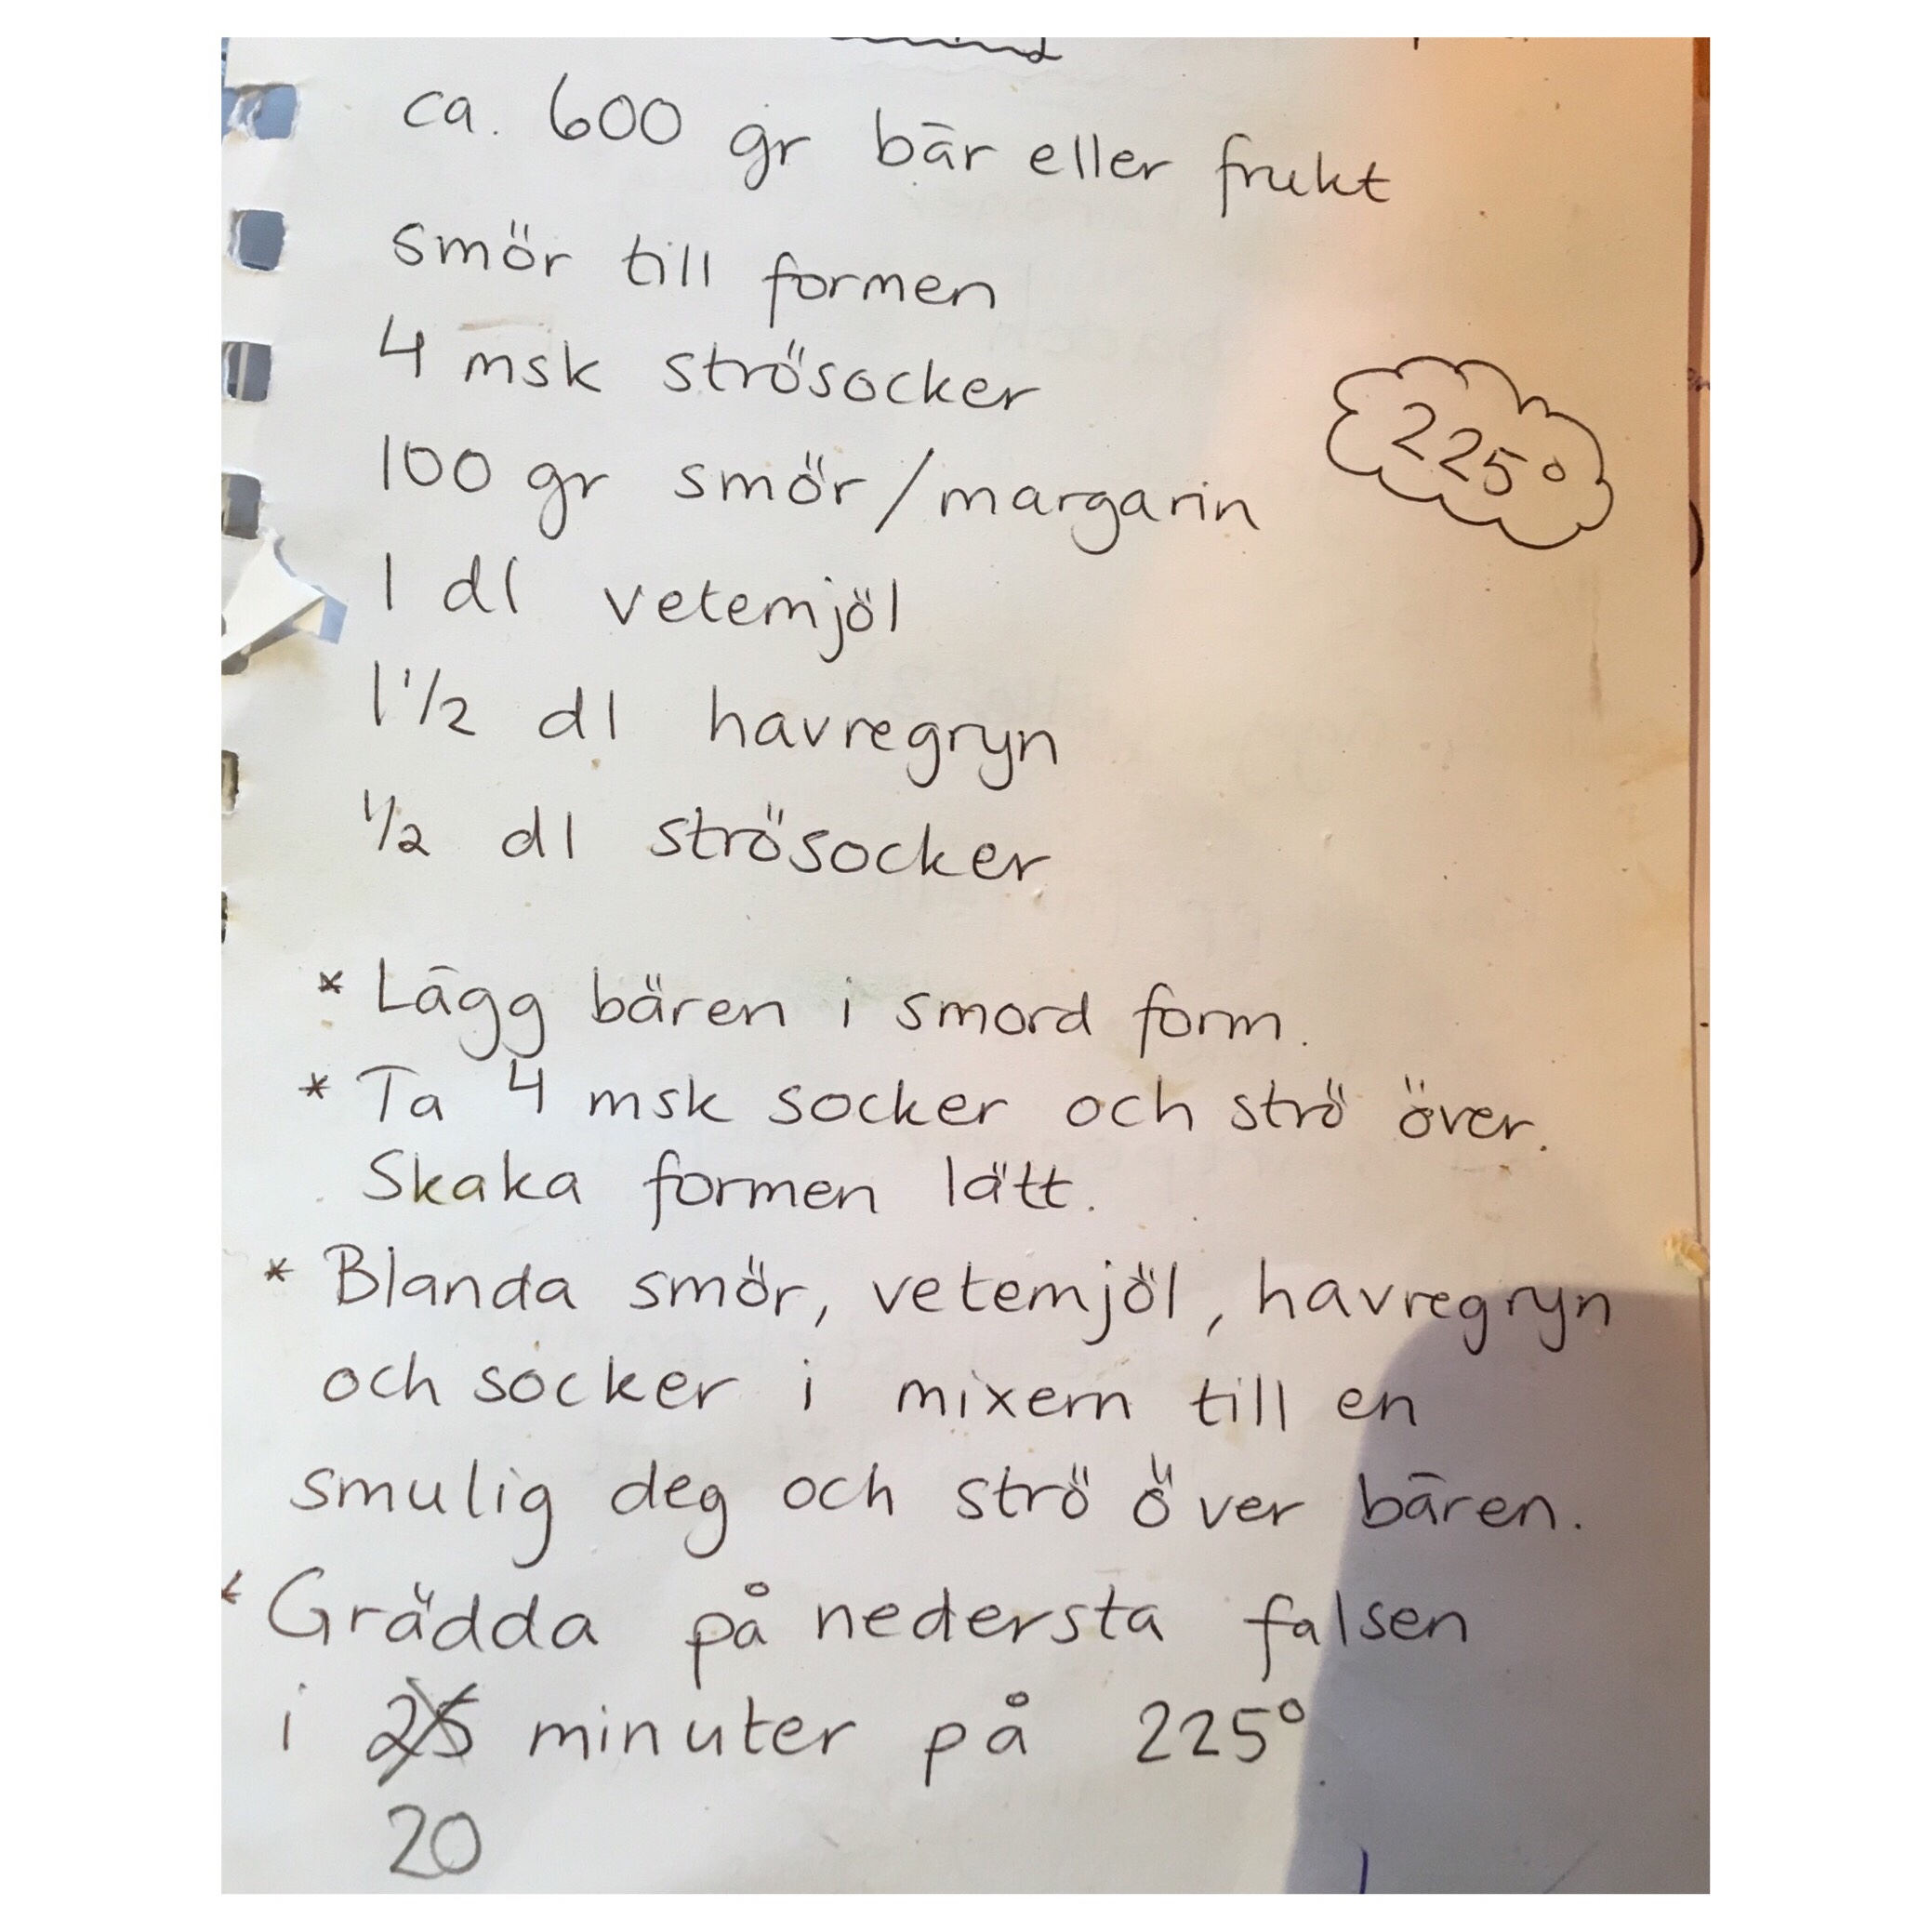 ca. 600 gr bär eller frukt
smör till formen
4 msk strösocker
100 gr smör/margarin
225°
1 dl vetemjöl
1 1/2 dl havregryn
1/2 dl strösocker
* Lägg bären i smord form.
* Ta 4 msk socker och strö över.
Skaka formen lätt.
* Blanda smör, vetemjöl, havregryn
och socker i mixern till en
smulig deg och strö över bären.
* Grädda på nedersta falsen
i 25 minuter på 225°
20